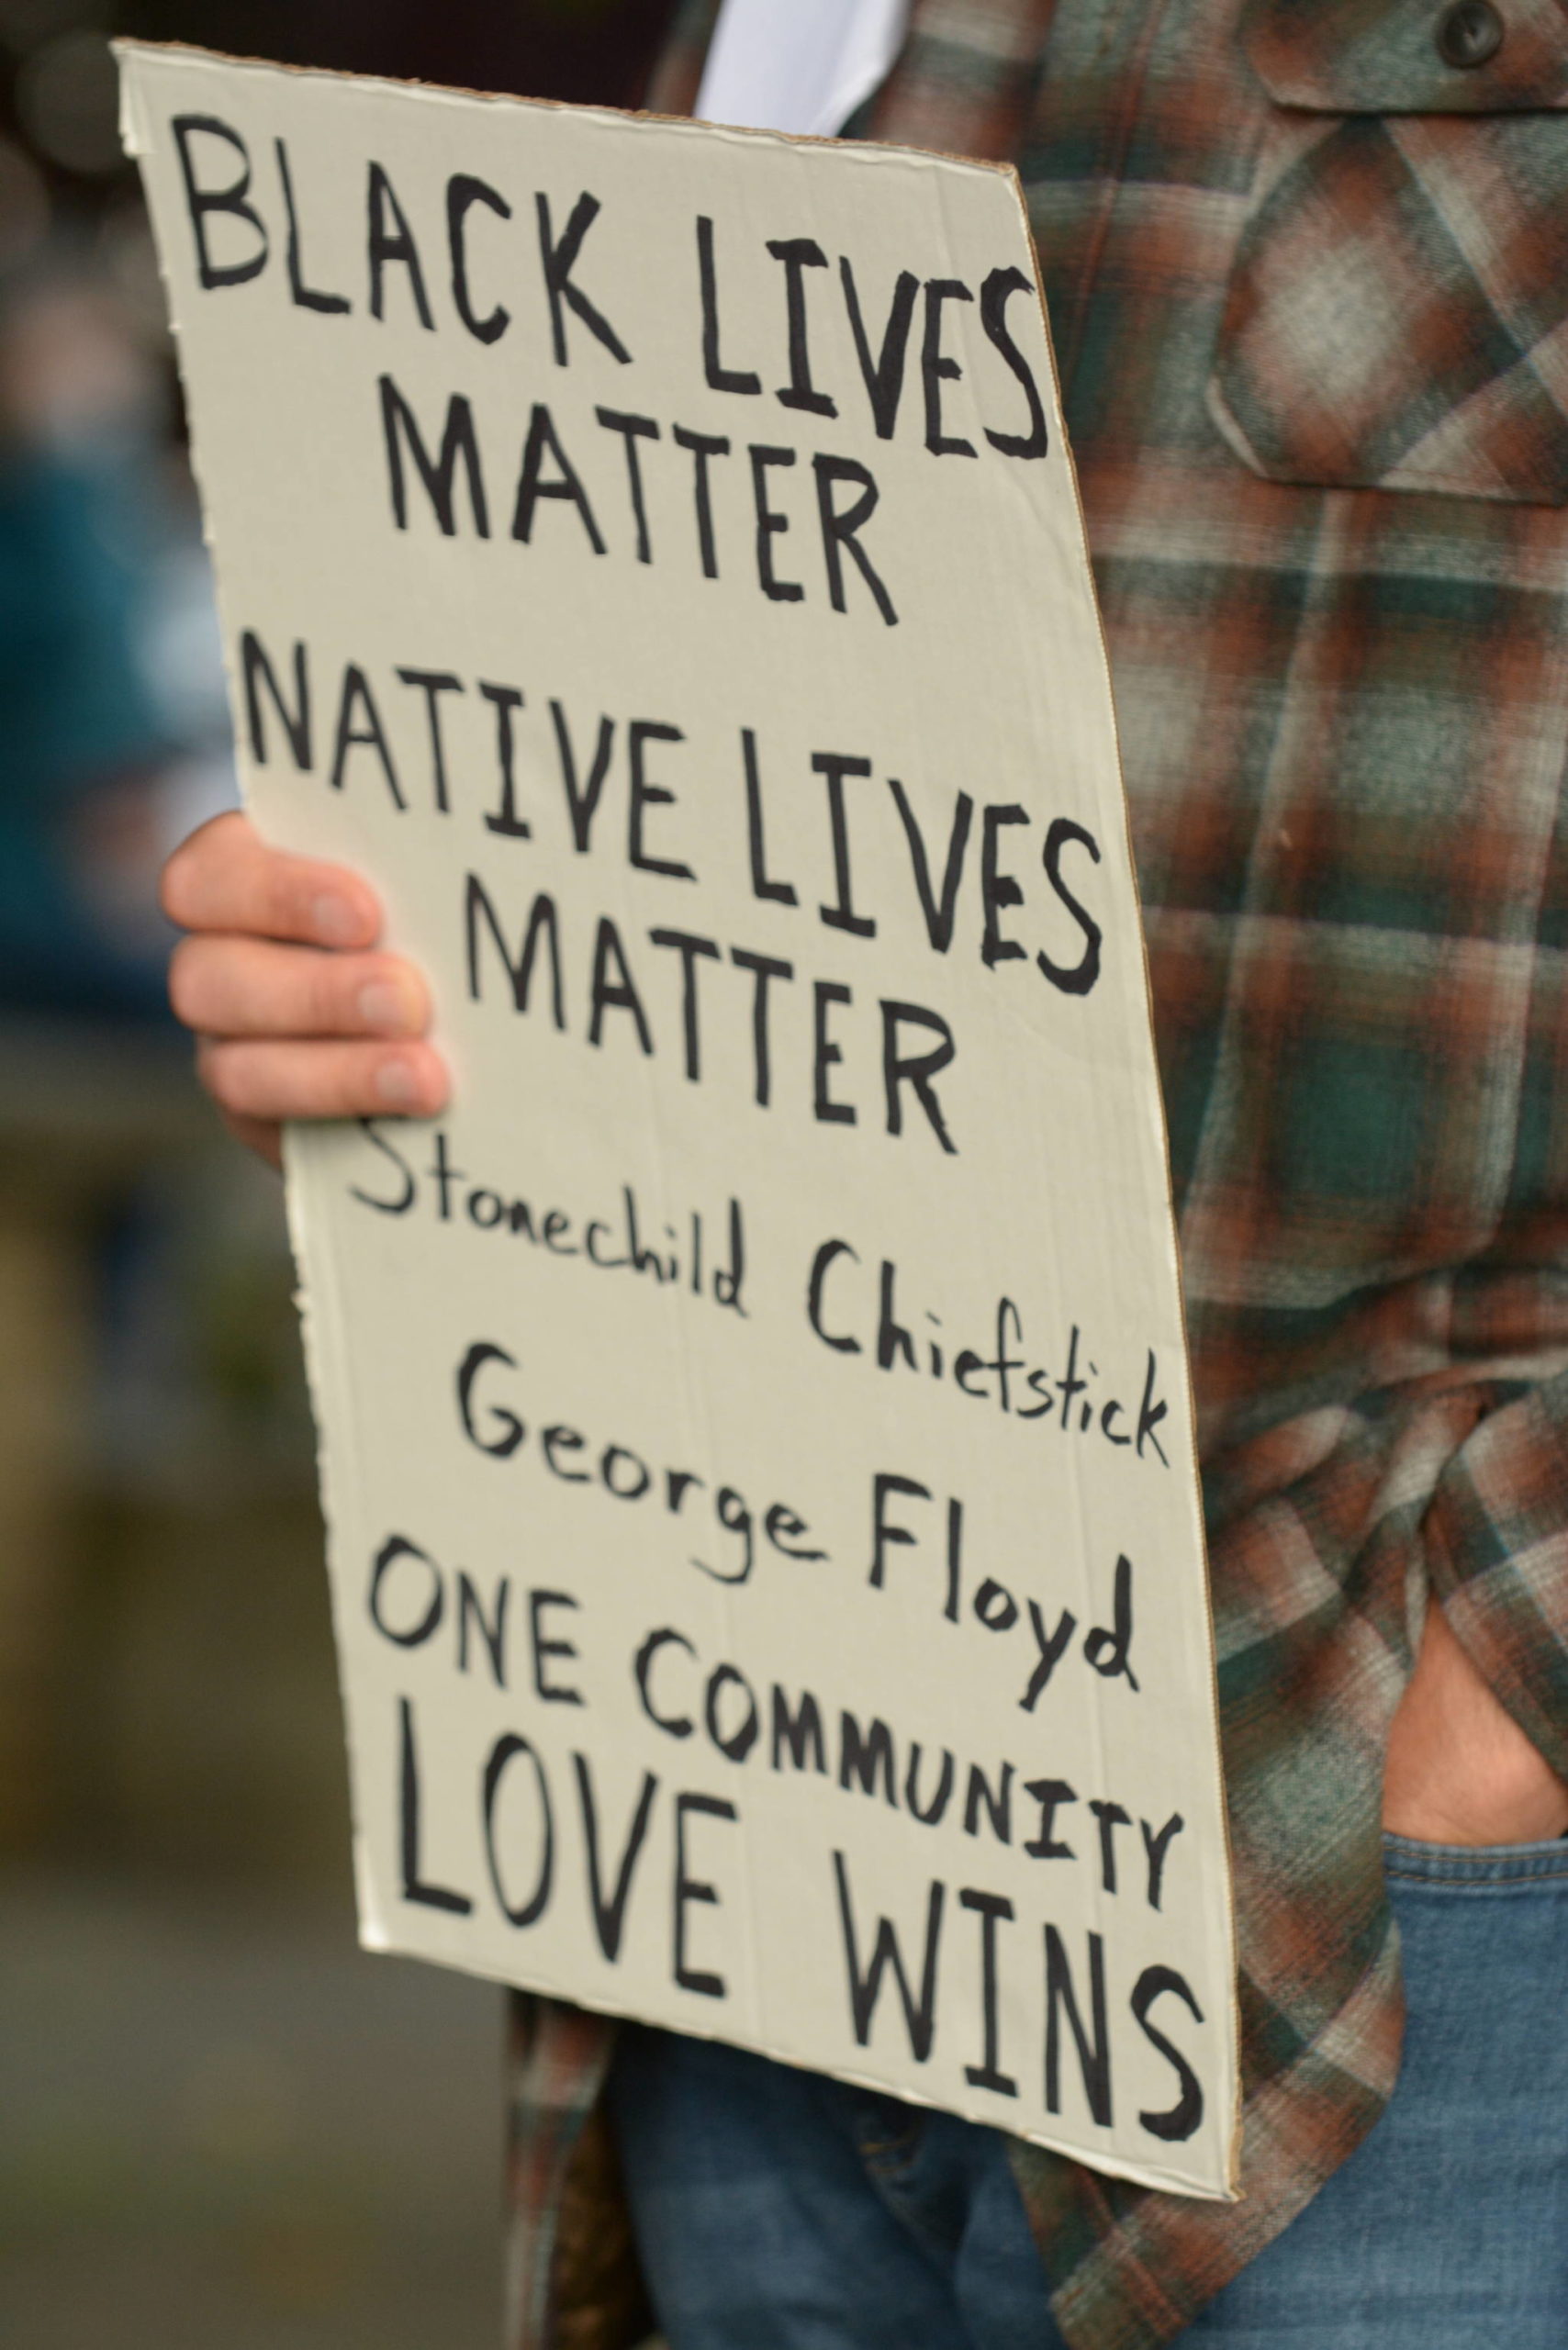 BLACK LIVES
MATTER
NATIVE LIVES
MATTER
Stonechild Chiefstick
George Floyd
ONE COMMUNITY
LOVE WINS